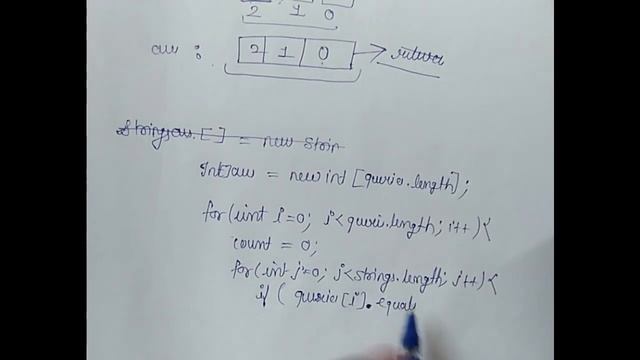 2 1 0
arr : 2 1 0 → return
String arr [ ] = new Strin
Int[] arr = new int [queries.length];
for(int i=0; i<queri.length; i++){
count = 0;
for(int j=0; j<strings.length; j++){
if ( queries[i].equal